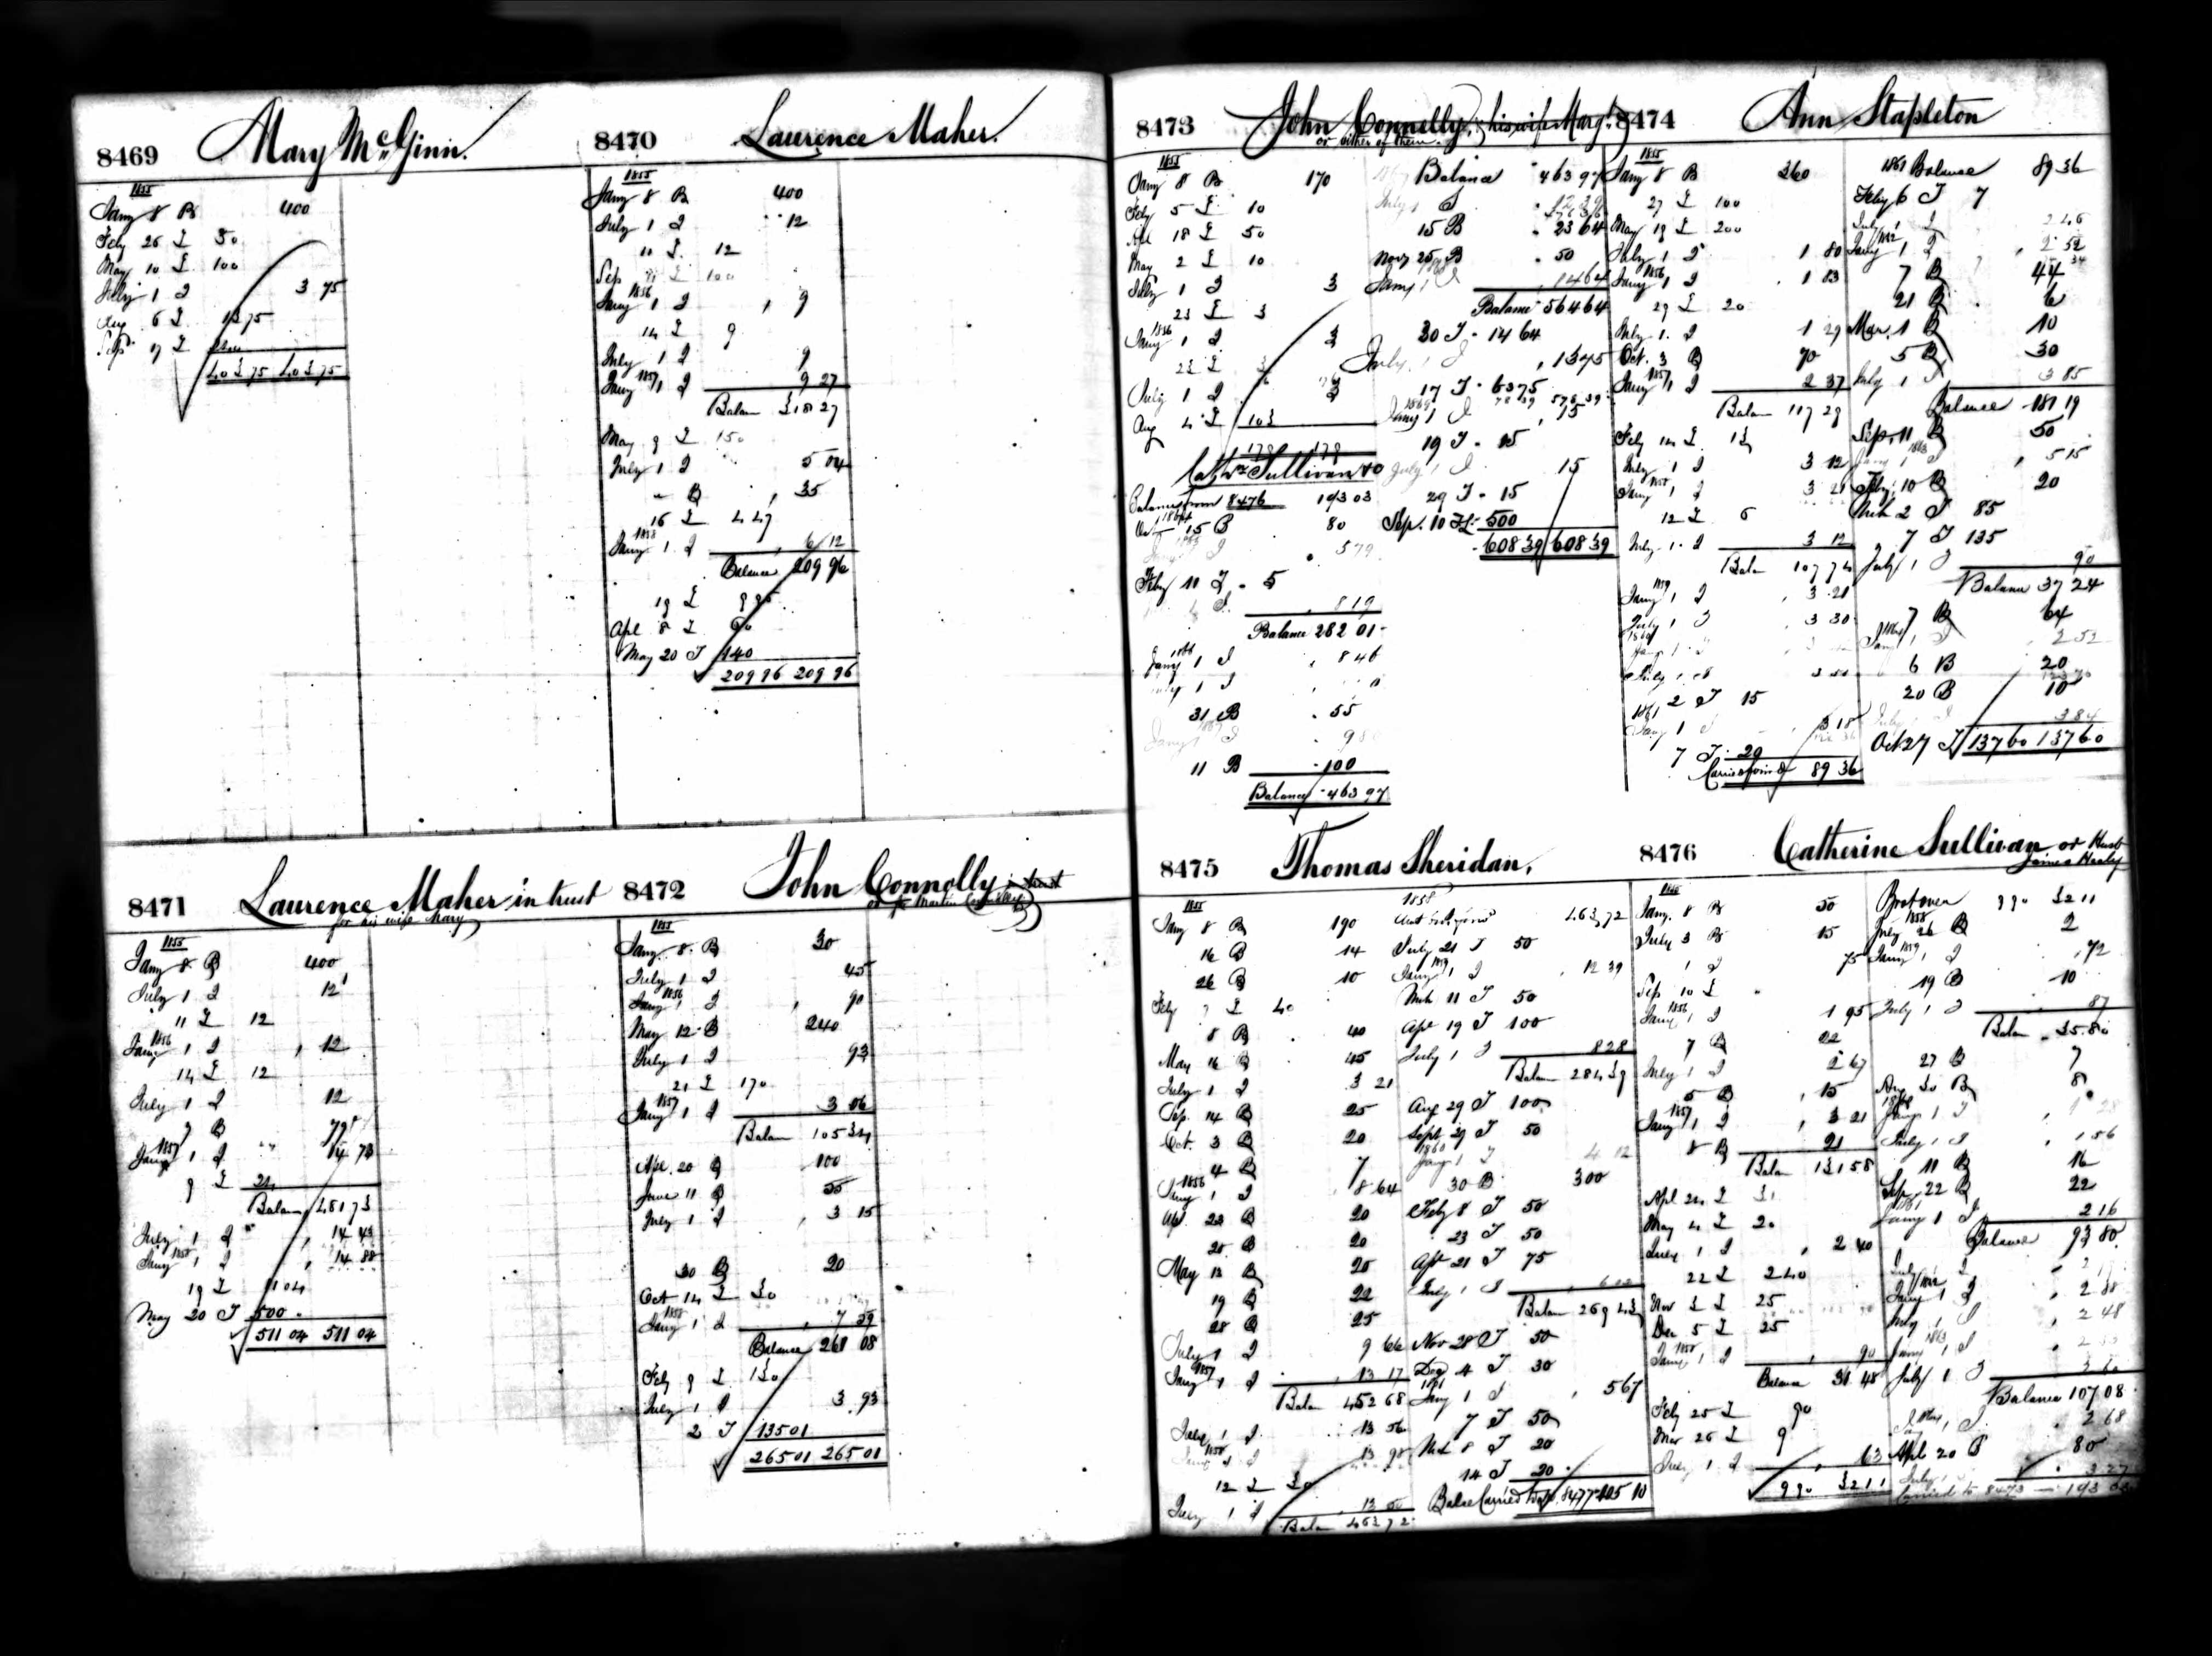 8469 Mary McGinn.
1855
Jany 8 B 400
Feby 26 L 50
May 10 L 100
July 1 I 3 75
Aug 6 L 13 75
Sep 17 L
403 75 403 75
8470 Laurence Maher.
1855
Jany 8 B 400
July 1 I 12
11 L 12
Sep L 100
1856
Jany 1 I 9
14 L 9
July 1 I 9
1857
Jany 1 I 9 27
Balan 318 27
May 9 L 150
July 1 I 5 04
B 35
16 L 4 47
1858
Jany 1 I 6 12
Balance 209 96
19 L 9 96
Apl 8 L 60
May 20 I 140
209 96 209 96
8471 Laurence Maher in trust
for his wife Mary
1855
Jany 8 B 400
July 1 I 12
11 L 12
1856
Jany 1 I 12
14 L 12
July 1 I 12
7 B 79
1857
Jany 1 I 14 73
9 L 24
Balan 481 73
July 1 I 14 43
1858
Jany 1 I 14 88
19 L 11 04
May 20 I 500
511 04 511 04
8472 John Connolly in trust
1855
Jany 8 B 30
July 1 I 45
1856
Jany 1 I 90
May 12 B 240
July 1 I 93
21 L 170
1857
Jany 1 I 3 06
Balan 105 34
Apl 20 B 100
June 11 B 55
July 1 I 3 15
30 B 20
Oct 14 L 30
1858
Jany 1 I 7 59
Balance 261 08
Feby 9 L 130
July 1 I 3 93
2 I 135 01
265 01 265 01
8473 John Connelly, & his wife Margt
or either of them.
1855
Jany 8 B 170
Feby 5 L 10
Apl 18 L 50
May 2 L 10
July 1 I 3
23 L 3
1856
Jany 1 I 3
23 L 3
July 1 I 3
Aug 4 L 103
179 179
Cathre Sullivan &c
Balance from 8476 193 03
15 B 80
5 79
Feby 11 I 5
8 19
Balance 282 01
1866
Jany 1 I 8 46
July 1 I
31 B 55
1867
Jany 1 I
11 B 100
Balance 463 97
Balance 463 97
July 1 I
15 B 23 64
Novr 25 B 50
Jany 1 I 14 64
Balance 564 64
30 I 14 64
July 1 I 13 75
17 I 63 75
1869
Jany 1 I 15
19 I 15
July 1 I 15
29 I 15
Sep. 10 I 500
608 39 608 39
8474 Ann Stapleton
1855
Jany 8 B 260
27 L 100
May 19 L 200
July 1 I 1 80
1856
Jany 1 I 1 83
29 L 20
July 1 I 1 29
Oct. 3 B 70
1857
Jany 1 I 2 37
Balan 117 29
Feby 14 L 13
July 1 I 3 12
1858
Jany 1 I 3 21
12 L 5
July 1 I 3 12
Balan 107 74
1859
Jany 1 I 3 21
July 1 I 3 30
1860
July 1 I
2 I 15
1861
Jany 1 I 3 18
7 I 20
Carried forwd 89 36
1861 Balance 89 36
Feby 6 I 7
July 1 I 2 46
1862
Jany 1 I 2 52
7 B 44
21 B 6
Mar. 1 B 10
5 B 30
July 1 I 3 85
Balance 181 19
Sep. 11 B 50
1863
Jany 1 I 5 15
Feby 10 B 20
Mch 2 I 85
7 I 135
July 1 I 90
Balance 37 24
7 B 64
1864
Jany 1 I 2 52
6 B 20
20 B 10
July 1 I 3 84
Oct 27 I 137 60 137 60
8475 Thomas Sheridan.
1855
Jany 8 B 190
16 B 14
26 B 10
Feby 7 L 40
8 B 40
May 16 B 45
July 1 I 3 21
Sep. 14 B 25
Oct. 3 B 20
4 B 7
1856
Jany 1 I 8 64
Apl 22 B 20
25 B 20
May 13 B 25
19 B 22
28 B 25
July 1 I 9 66
1857
Jany 1 I 13 17
Balan 452 68
July 1 I 13 56
1858
Jany 1 I 13 98
12 L 30
July 1 I 13 50
Balan 463 72
1858
463 72
July 21 I 50
1859
Jany 1 I 12 39
Mch 11 I 50
Apl 19 I 100
July 1 I 8 28
Balan 284 39
Aug 29 I 100
Sept 29 I 50
1860
Jany 1 I 4 12
30 B 300
Feby 8 I 50
23 I 50
Apl 21 I 75
July 1 I
Balan 269 43
Nov 28 I 50
Dec 4 I 30
1861
Jany 1 I 5 67
7 I 50
Mch 8 I 20
14 I 20
Balce Carried to No 8477 105 10
8476 Catherine Sullivan or Husb
James Healey
1855
Jany 8 B 50
July 3 B 15
1 I 75
Sep 10 L
1856
Jany 1 I 1 95
7 B 22
July 1 I 2 67
5 B 15
1857
Jany 1 I 3 21
8 B 21
Balan 131 58
Apl 24 L 31
May 4 L 20
July 1 I 2 40
22 L 2 40
Nov 3 L 25
Dec 5 L 25
1858
Jany 1 I 90
Balance 31 48
Feby 25 L 90
Mar 26 L 9
July 1 I 63
9 90 32 11
Brot over 9 90 32 11
1858
July 26 B 2
1859
Jany 1 I 72
19 B 10
July 1 I 87
Balan 35.80
27 B 7
Aug 30 B 8
1860
Jany 1 I 1 28
July 1 I 1 56
11 B 16
Sep. 22 B 22
1861
Jany 1 I 2 16
Balance 93 80
July 1 I
1862
Jany 1 I 2 38
July 1 I 2 48
1863
Jany 1 I
July 1 I 3 60
Balance 107 08
1864
Jany 1 I 2 68
Apl 20 B 80
July 1 I 3 27
Carried to 8473 193 03